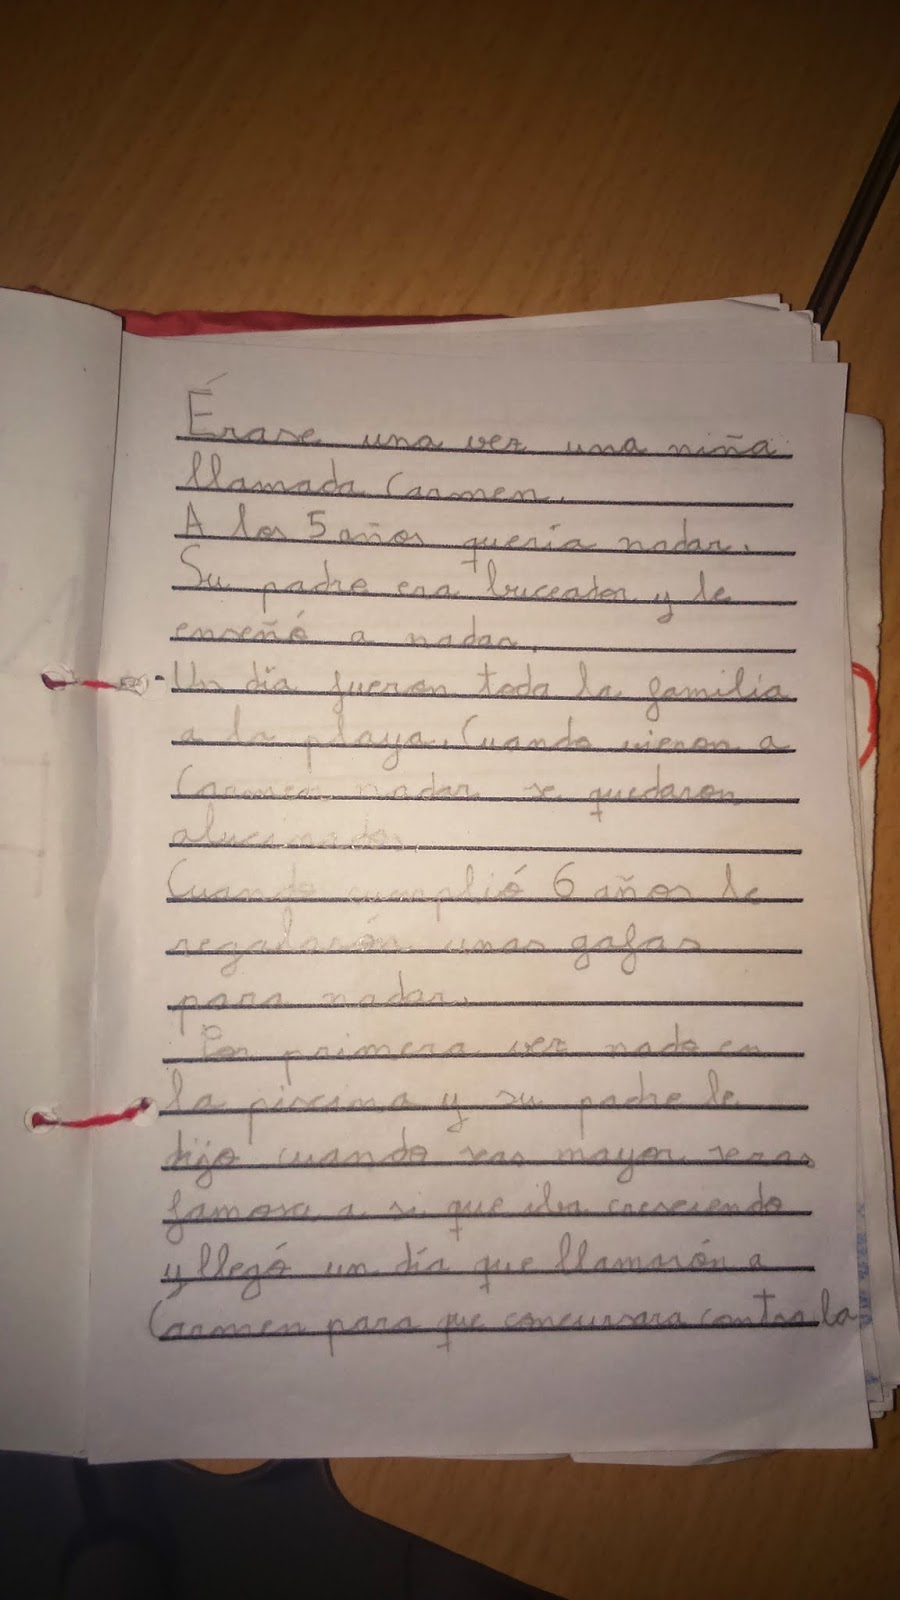 Érase una vez una niña
llamada Carmen.
A los 5 años quería nadar.
Su padre era buceador y le
enseñó a nadar.
Un día fueron toda la familia
a la playa. Cuando vieron a
Carmen nadar se quedaron
alucinados.
Cuando cumplió 6 años le
regalarón unas gafas
para nadar.
Por primera vez nado en
la piscina y su padre le
dijo cuando seas mayor seras
famosa a si que iba cresciendo
y llegó un día que llamarón a
Carmen para que concursara contra la